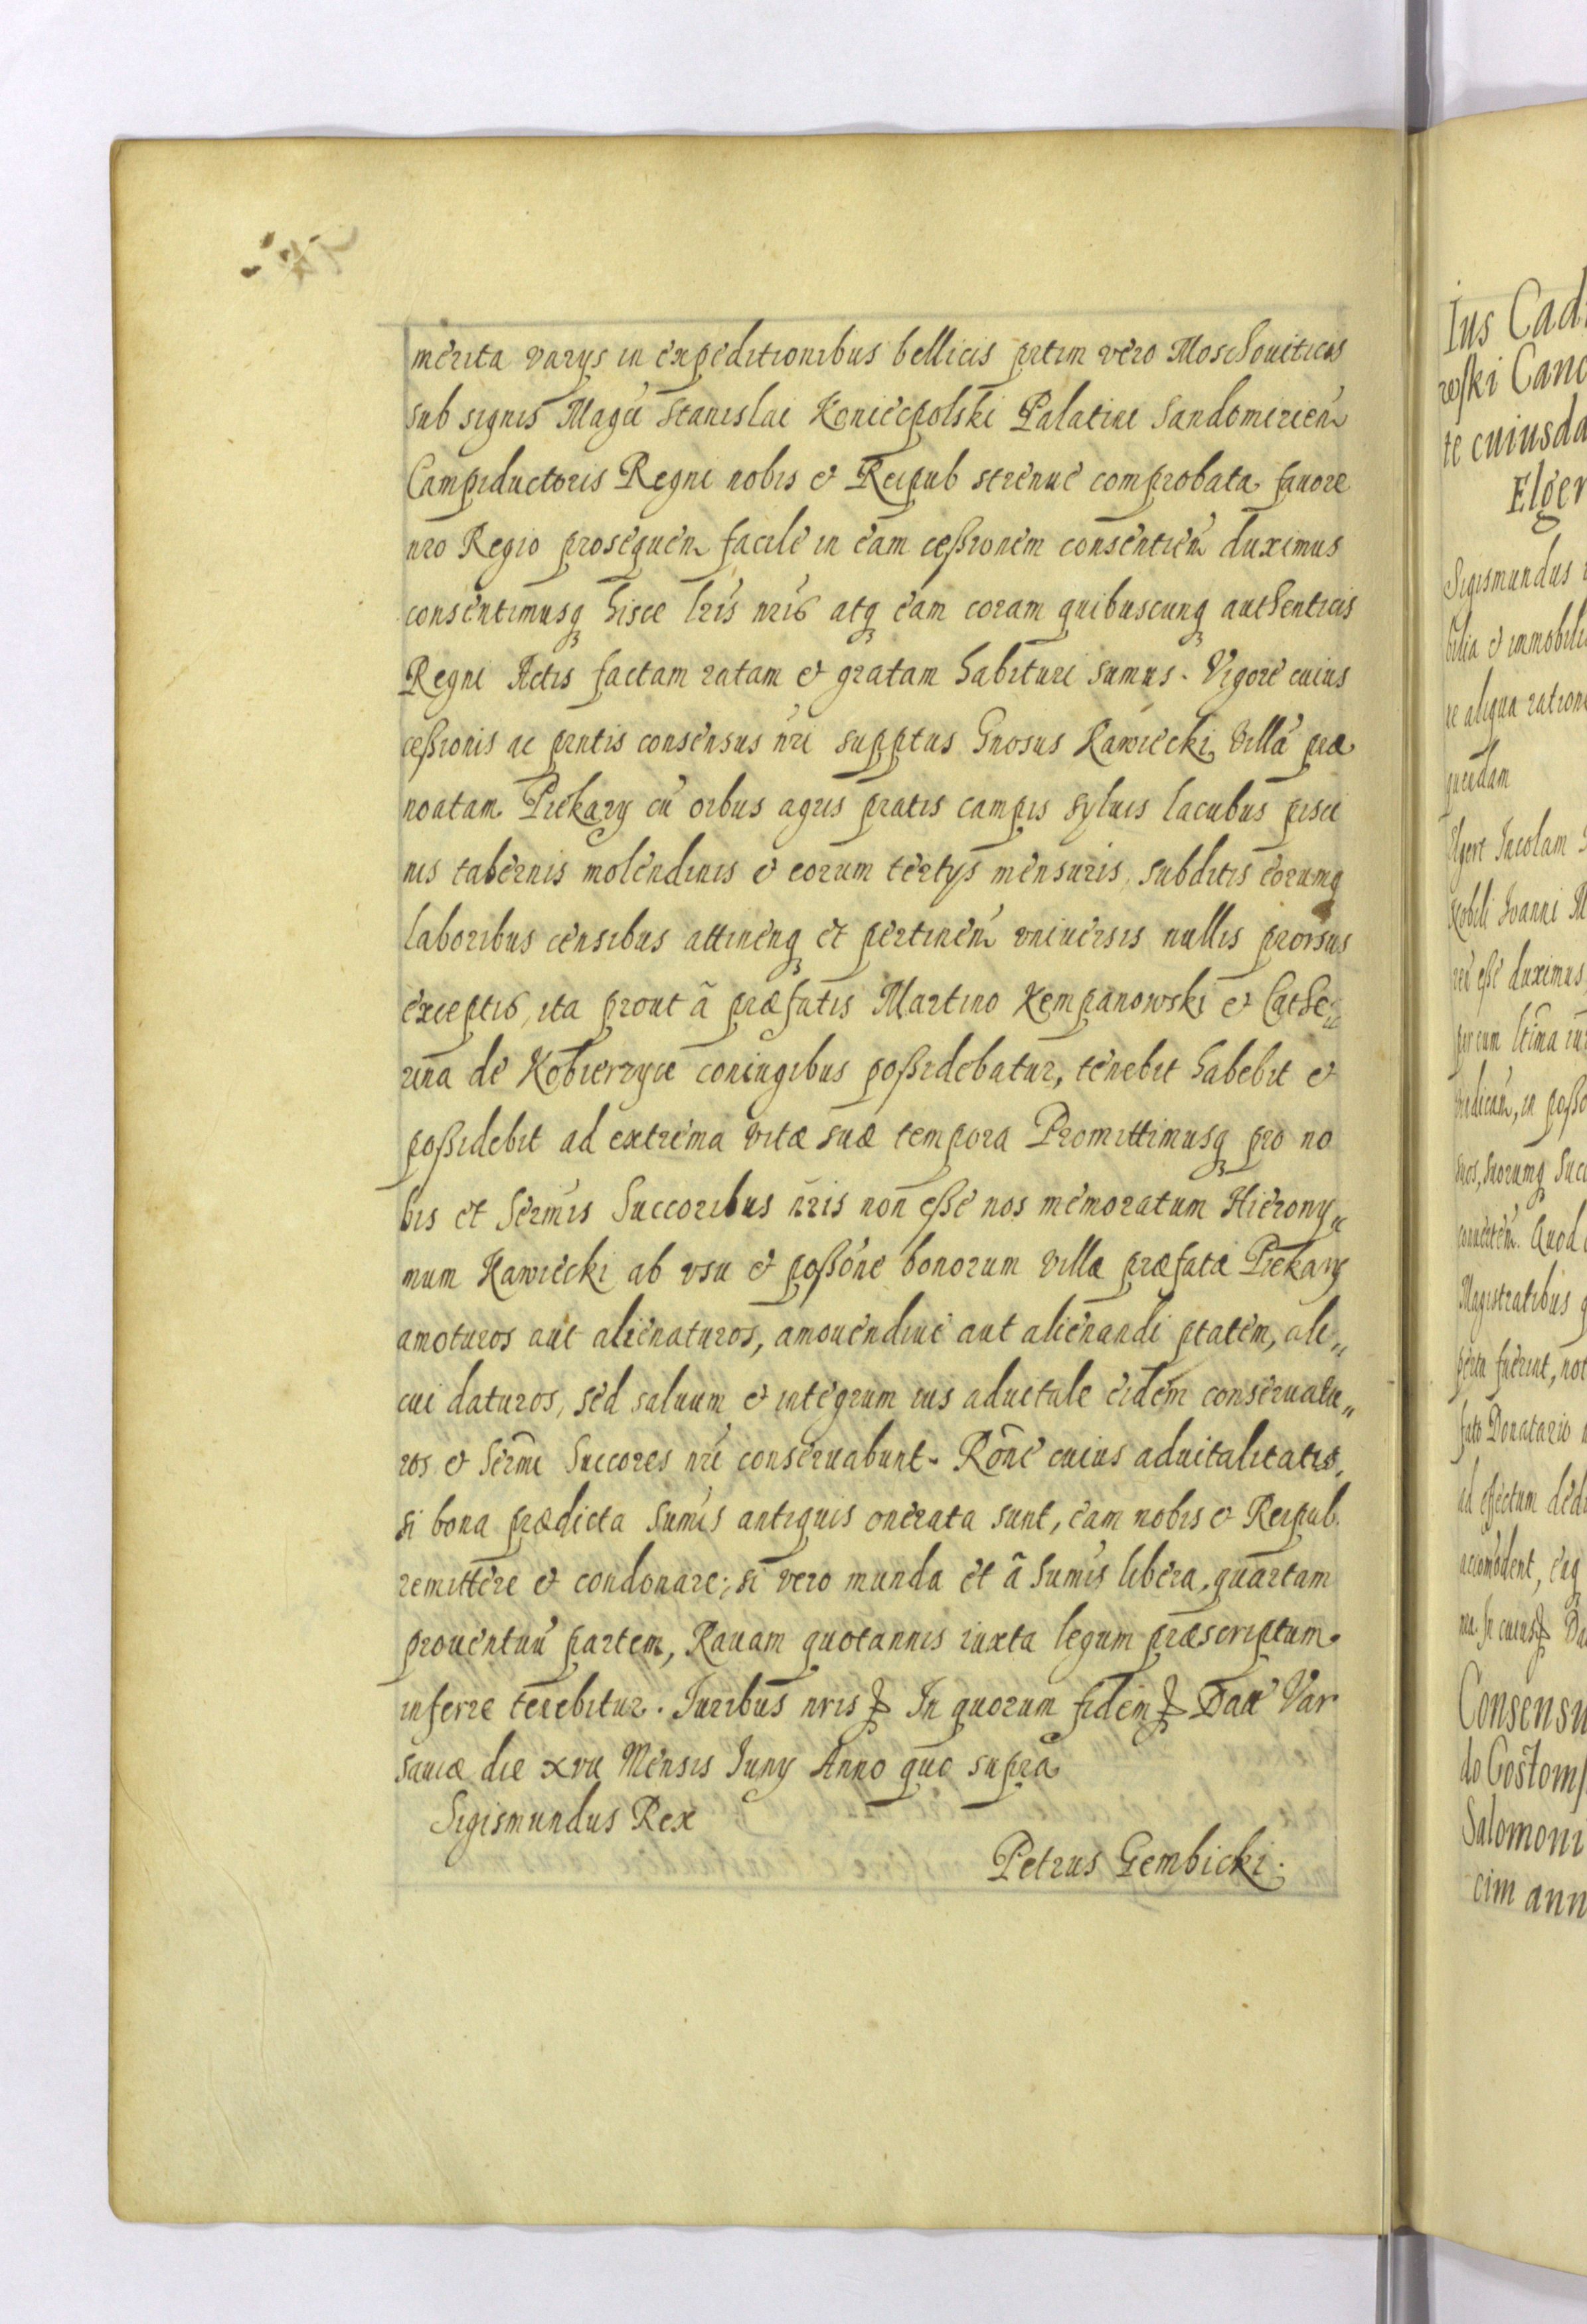 merita varys in expeditionibus bellicis prtim vero Moschouiticis
sub signis Magci Stanislai Koniecpolski Palatini Sandomirien
Campiductoris Regni nobis et Reipub strenue comprobata fauore
nro Regio prosequen facile in eam cessionem consentien duximus
consentimusq hisce lris nris atq eam coram quibuscunq authenticis
Regni Actis factam ratam et gratam habituri sumus. Vigore cuius
cessionis ac prntis consensus nri supptus Gnosus Kawiecki villa præ
noatam Piekary cu oibus agris pratis campis syluis lacubus pisci
nis tabernis molendinis et eorum tertys mensuris, subditis eorumq
laboribus censibus attinenq et pertinen vniuersis nullis prorsus
exceptis, ita prout ã præfatis Martino Kempanowski et Cathe„
rina de Kobierzyce coniugibus possidebatur, tenebit habebit et
possidebit ad extrema vitæ suæ tempora Promittimusq pro no
bis et Sermis Succoribus nris non esse nos memoratum Hierony„
mum Kawiecki ab vsu et possone bonorum villæ præfatæ Piekary
amoturos aut alienaturos, amouendiue aut alienandi ptatem, ali„
cui daturos, sed saluum et integrum ius aduitale eidem conseruatu„
ros et Sermi Succores nri conseruabunt. Rone cuius aduitalitatis,
si bona prædicta sumis antiquis onerata sunt, eam nobis et Reipub.
remittere et condonare; si vero munda et ã sumis libera, quartam
prouentuu partem, Rauam quotannis iuxta legum præscriptum
inferre tenebitur. Iuribus nris In quorum fidem Dat Var
sauiæ die xvii Mensis Iuny Anno quo supra
Sigismundus Rex
Petrus Gembicki.
Ius Cad
wski Canc
te cuiusda
Elger
Sigismundus
bilia et immobili
ac aliqua ration
quædam
Elgert Incolam
Nobili Ioanni M
esse duximus
in posso
suos, suorumq Succ
Quod
Magistratibus
fuerint, not
fato Donatario
ad effectum dedu
accomodent, eaq
Consensu
do Gostoms
Salomoni
cim ann